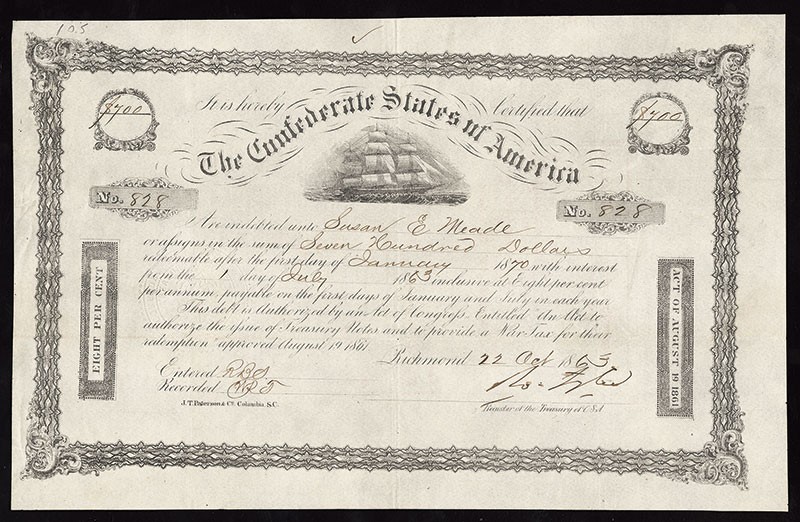 105
$700
It is hereby Certified that
$700
The Confederate States of America
No. 828
No. 828
Are indebted unto Susan E Meade
or assigns in the sum of Seven Hundred Dollars
redeemable after the first day of January 1870 with interest
from the 1 day of July 1863 inclusive at Eight per cent
per annum, payable on the first days of January and July in each year
This debt is Authorized by an Act of Congress. Entitled An Act to
authorize the issue of Treasury Notes and to provide a War Tax for their
redemption" approved August 19 1861
EIGHT PER CENT
ACT OF AUGUST 19 1861
Richmond 22 Oct 1863
Entered
Recorded
Ro. Tyler
J. T. Paterson & Co. Columbia, S.C.
Register of the Treasury of C.S.A